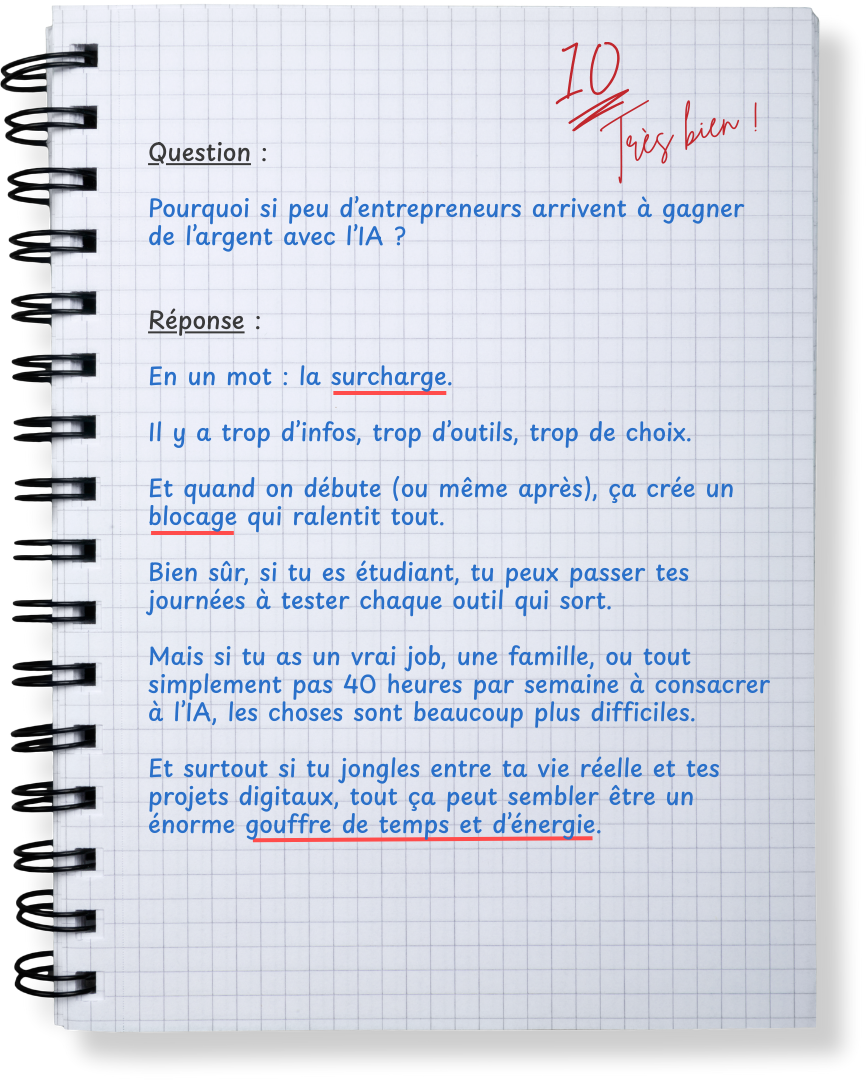 10
Très bien !
Question :
Pourquoi si peu d'entrepreneurs arrivent à gagner
de l'argent avec l'IA ?
Réponse :
En un mot : la surcharge.
Il y a trop d'infos, trop d'outils, trop de choix.
Et quand on débute (ou même après), ça crée un
blocage qui ralentit tout.
Bien sûr, si tu es étudiant, tu peux passer tes
journées à tester chaque outil qui sort.
Mais si tu as un vrai job, une famille, ou tout
simplement pas 40 heures par semaine à consacrer
à l'IA, les choses sont beaucoup plus difficiles.
Et surtout si tu jongles entre ta vie réelle et tes
projets digitaux, tout ça peut sembler être un
énorme gouffre de temps et d'énergie.